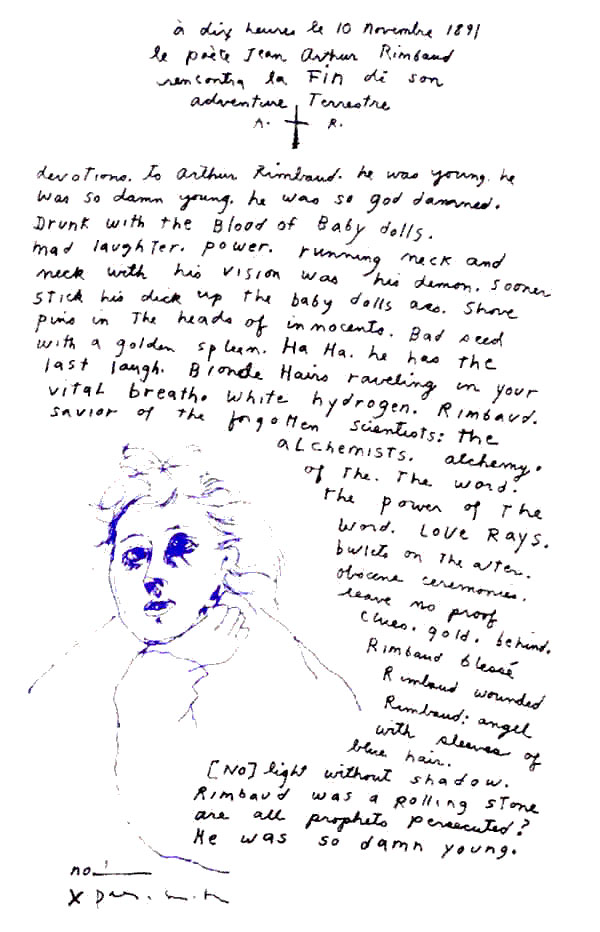 à dix heures le 10 Novembre 1891
le poète Jean Arthur Rimbaud
rencontra la Fin de son
adventure Terrestre
A. R.
devotions. to arthur Rimbaud. he was young. he
was so damn young. he was so god damned.
Drunk with the Blood of Baby dolls.
mad laughter. power. running neck and
neck with his vision was his demon. sooner
stick his dick up the baby dolls ass. Shove
pins in The heads of innocents. Bad seed
with a golden spleen. Ha Ha. he has the
last laugh. Blonde Hairs raveling in your
vital breath. white hydrogen. Rimbaud.
savior of the forgotten scientists: the
alchemists. alchemy.
of The. The word.
the power of The
word. LOVE RAYS.
bullets on The alter.
obscene ceremonies.
leave no proof
clues. gold. behind.
Rimbaud blessé
Rimbaud wounded
Rimbaud: angel
with sleeves of
blue hair.
[NO] light without shadow.
Rimbaud was a Rolling Stone
are all prophets persecuted?
He was so damn young.
no.
X